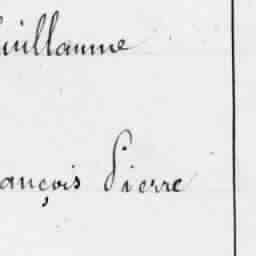 uillaume
ançois Pierre